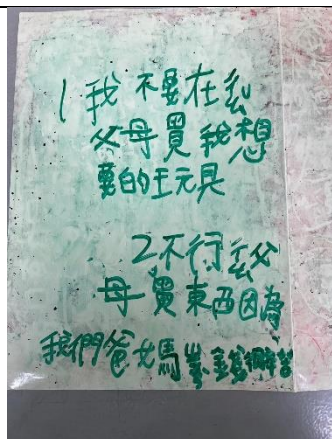 1 我不要在么
父母買我想
要白的玩具
2.不行么父
母買東西因為
我們爸媽賺錢很辛苦